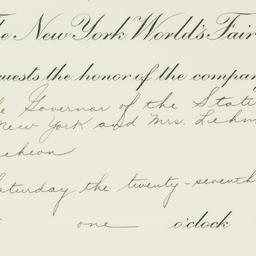 The New York World's Fair
quests the honor of the company
the Governor of the State
New York and Mrs. Lehm
ncheon
Saturday the twenty-seventh
one o'clock